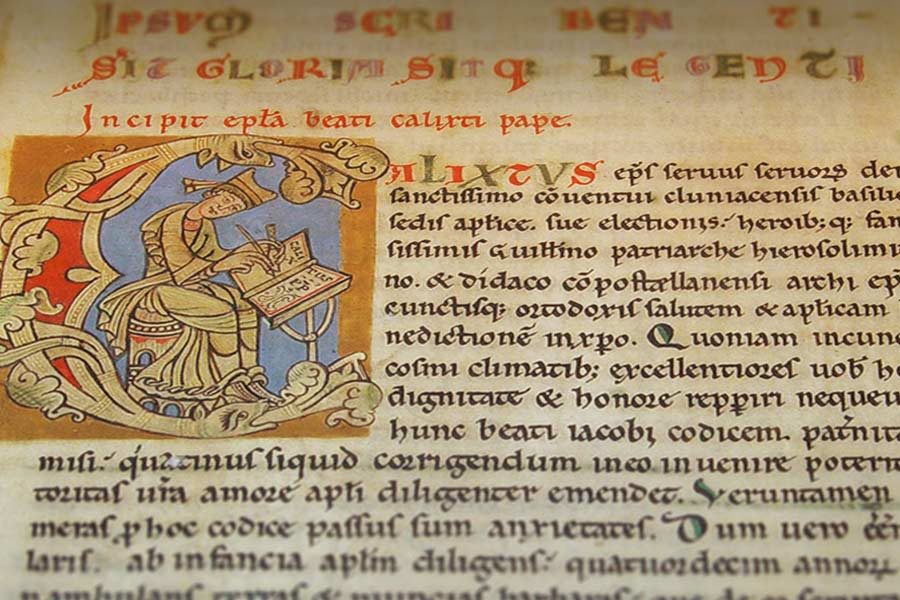 IPSVM SCRIBENTI
SIT GLORIA SITQ: LEGENTI
Incipit epła beati calixti pape.
ALIXTVS eps seruus seruorꝫ dei
sanctissimo cōuentui cluniacensis basilic
sedis aplice. sue electionis: heroib; q; fam
sissimis Guillino patriarche hierosolimi
no. & didaco cōpostellanensi archi ep
cunctisq; ortodoxis salutem & aplicam
nedictionē inxpo. Quoniam incunc
cosmi climatib; excellentiores uob
dignitate & honore repperiri nequeu
hunc beati iacobi codicem. patnita
misi: quatinus siquid corrigendum ineo inuenire poterit
toritas ura amore apli diligenter emendet. Veruntamen
meras phoc codice passus sum anxietates. Dum uero
laris. ab infancia aplm diligens: quatuordecim annorum
CALI